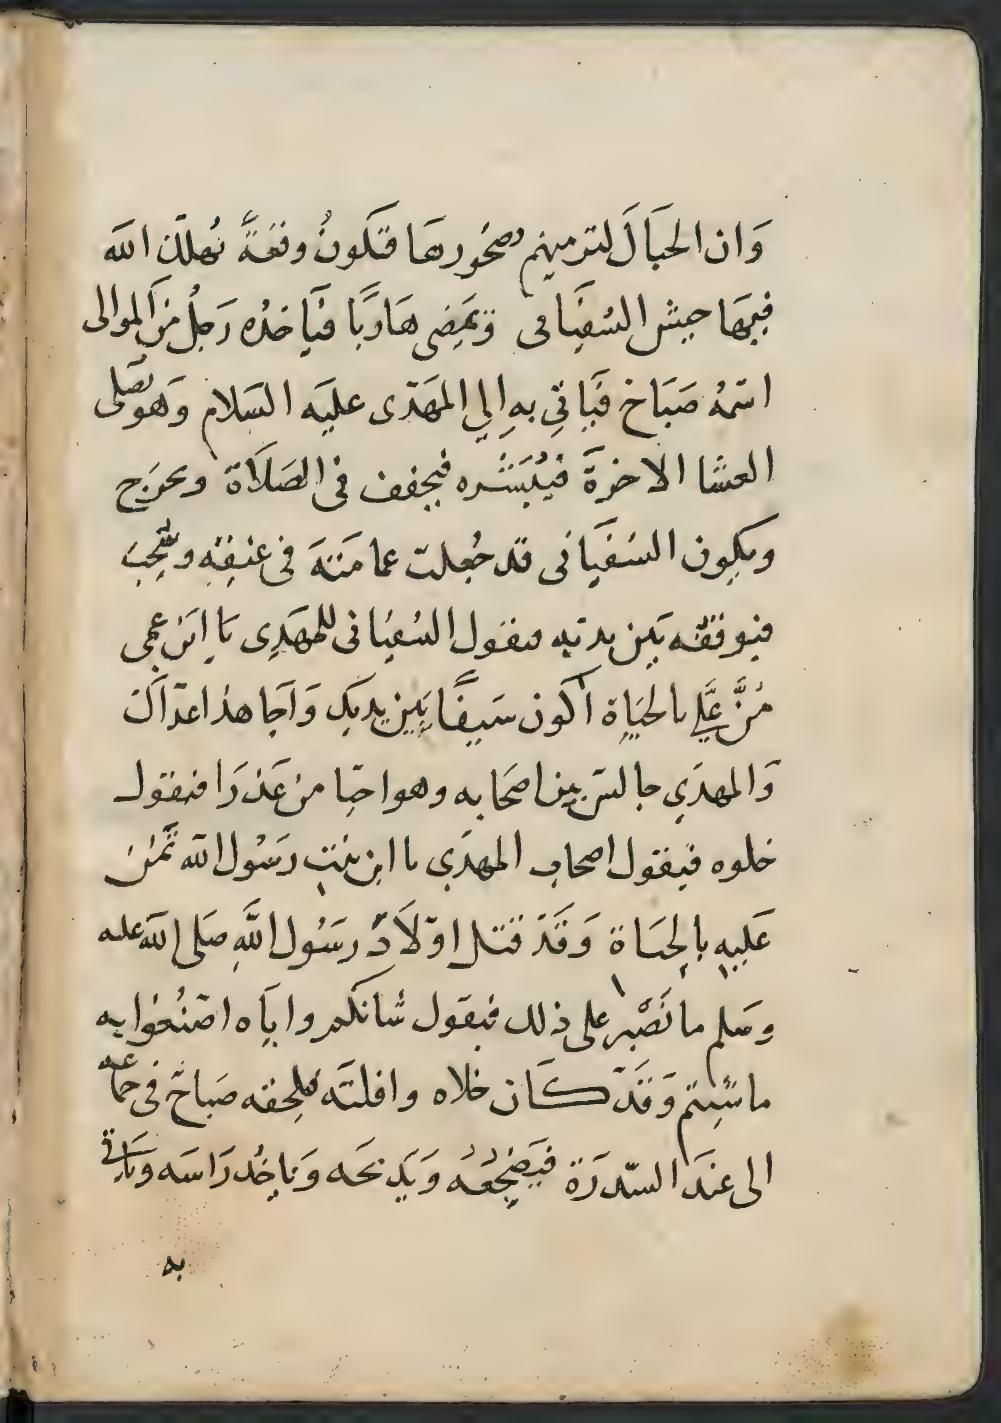 وَان الجبَالَ لترميهم بصخورهَا فتكونُ وقعَةً يُهلك الله
فيهَا جيش السُفيَانى وَيمضِى هَاربًا فيَاخذُه رَجلُ منَ الموالى
اسمُهُ صَبَاح فيَاتى بهِ إلي المهَدى عليَه السَلام وَهو يصَلى
العشا الاخرةَ فيُبَشره فيخفف فى الصَلَاة ويخرَج
ويكون السُفيَانى قد جُعلت عمامَتهَ فى عنقِهِ وسُحِبَ
فيوقفه بَين يديه فيقول السُفيانى للمهَدِى يَا ابَن عمى
مُنَّ عَليَّ بالحيَاة أكون سَيفًا بَين يديك وَاجَاهدُ اعدَاك
وَالمهدَي جالس بين اصحَابه وهو احيَا من عَذرَا فيقول
خلوه فيقول اصحاب المهدَي يا ابن بنتِ رسَوُل الله تمُن
عَليهِ بالحيَاة وَقَد قتل اوَلاَدَ رسَوُل اللَّهِ صَلى الله عليه
وسَلم ما نَصْبر على ذلك فيقول شانكم وايَاه اصنُعوا به
ما شِيتم وَقدَ كَان خلاه وافلتَه فيلحِقه صَبَاحَ فى جماعه
الى عندَ السّدرَة فيَضجِعُه وَيذبحَه وَياخُد رَاسَه ويَاتى
به